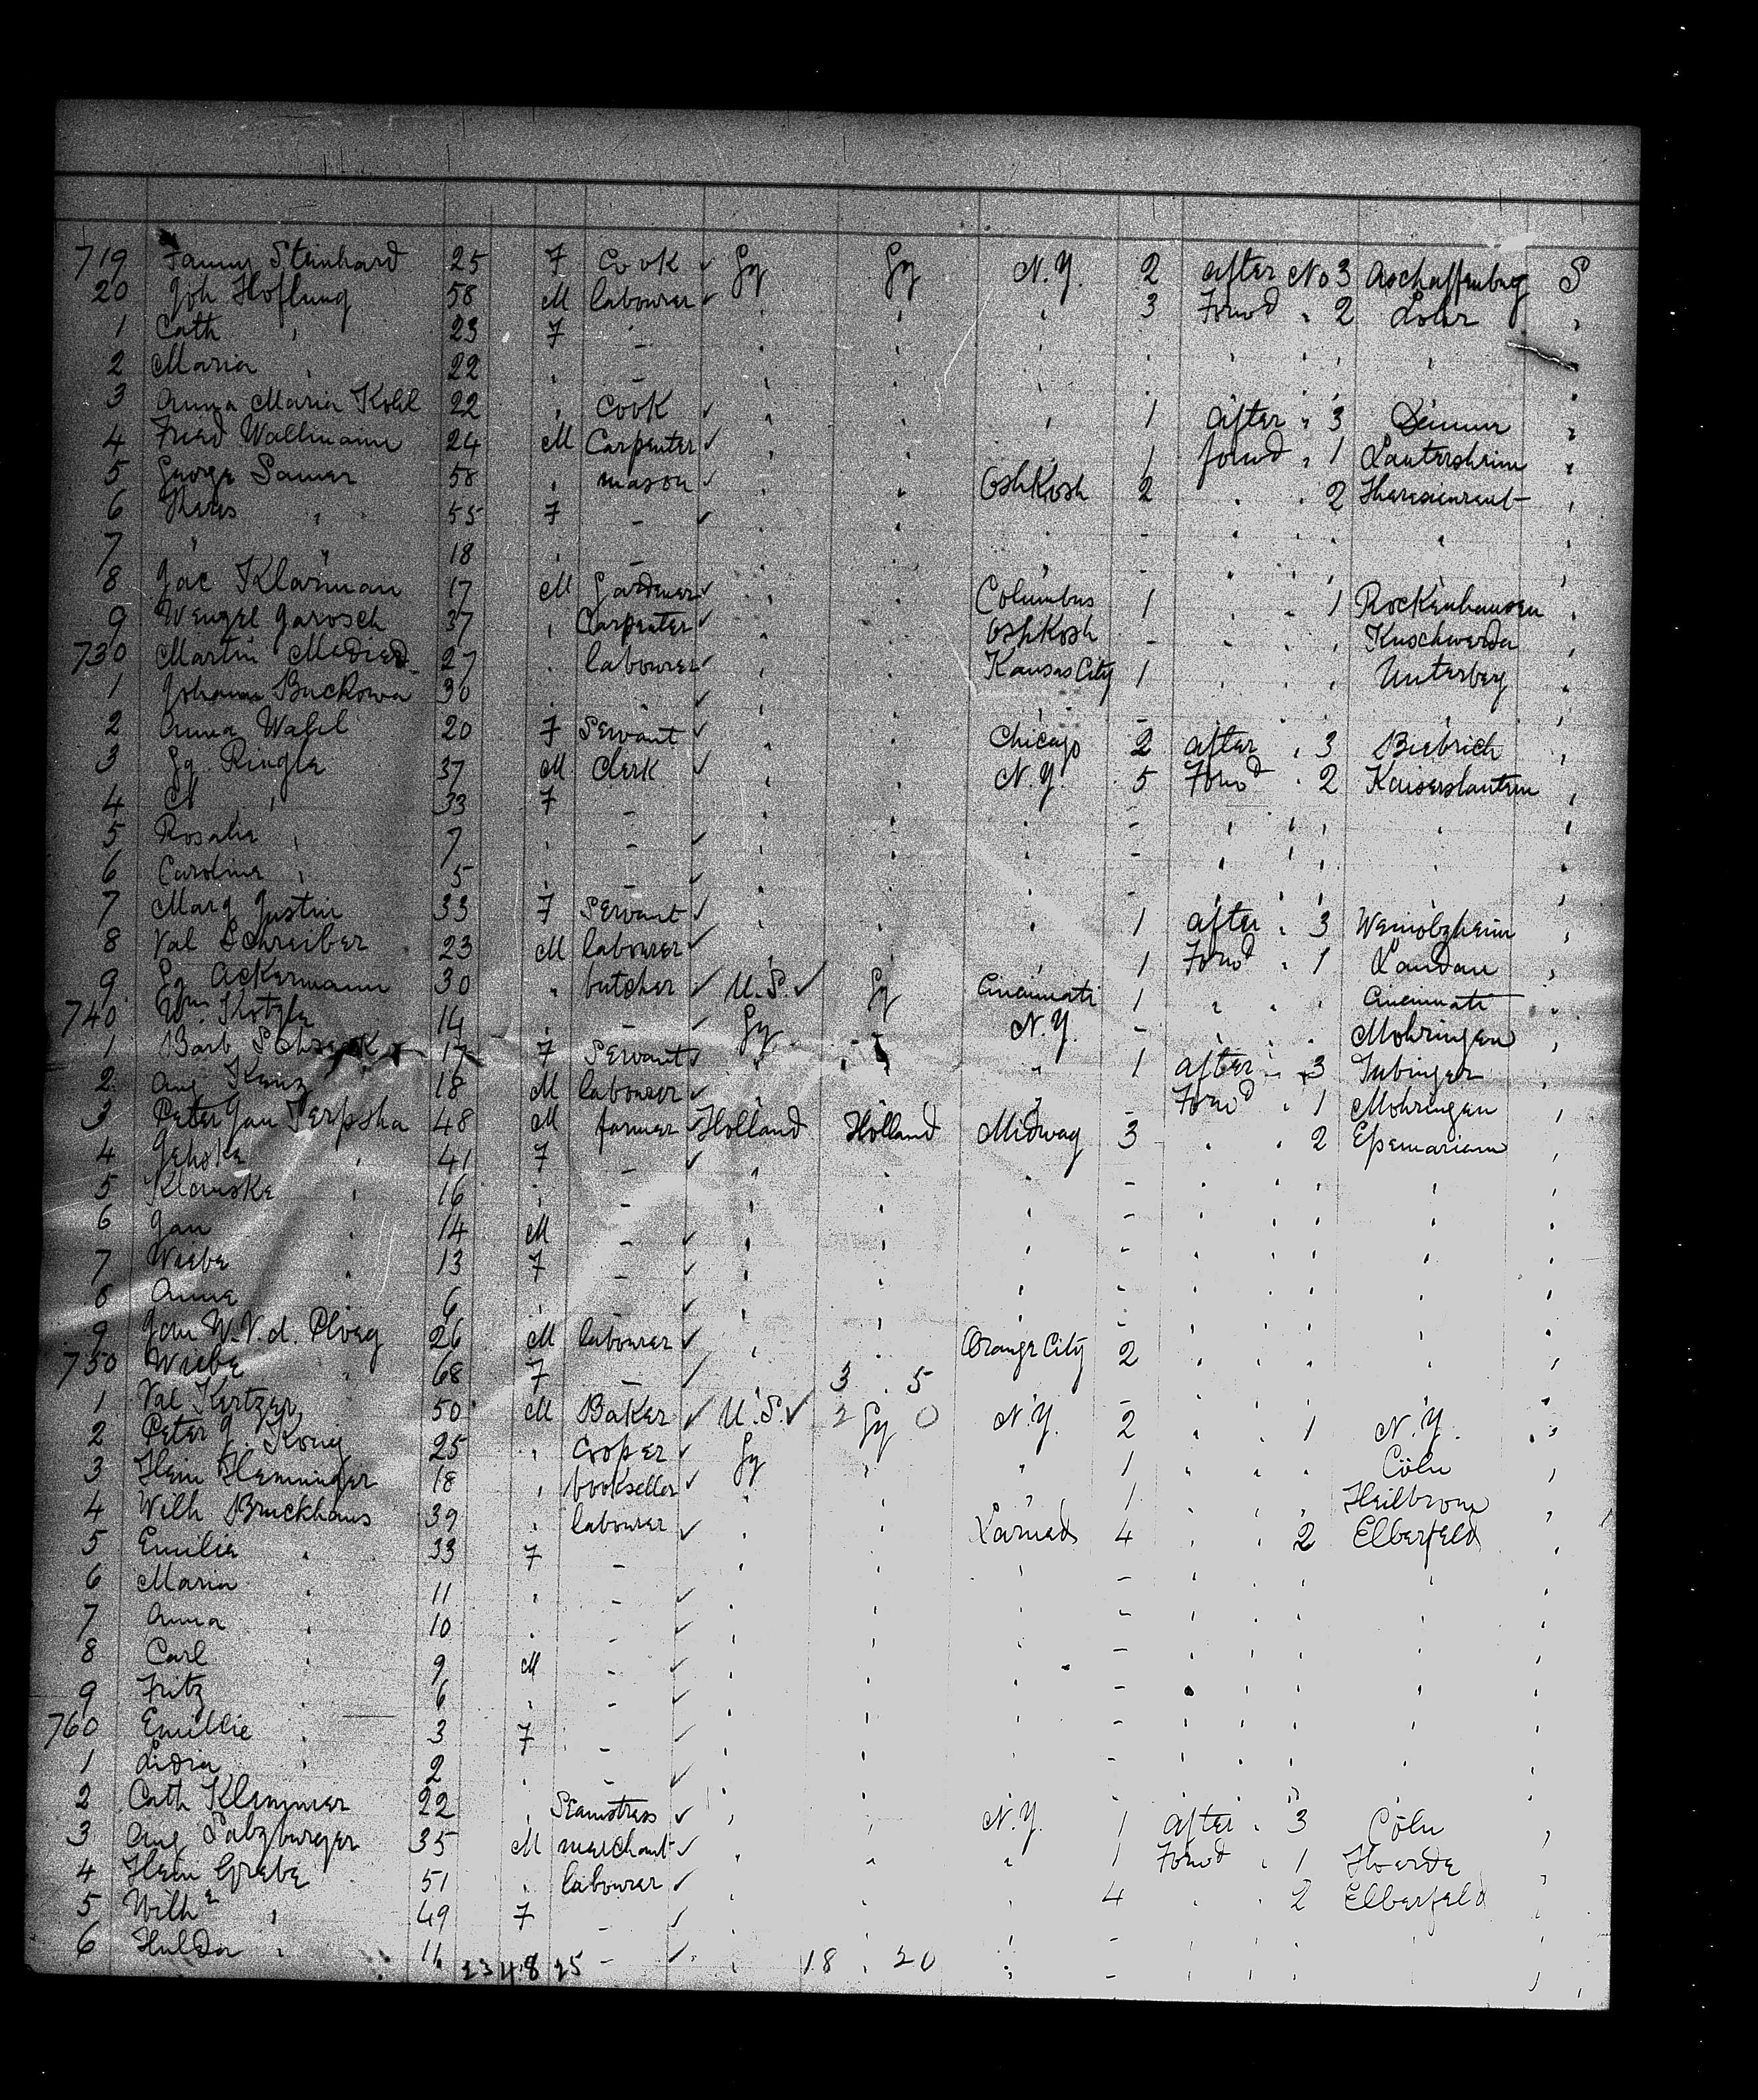 719 Fanny Steinhard 25 F Cook ✓ Gy Gy N.Y. 2 after No 3 Aschaffenburg S
20 Joh Hoflung 58 M labourer ✓ " " " 3 Forwd " 2 Lohr "
1 Cath " 23 F - " " " " " " " "
2 Maria " 22 " - " " " " " " " "
3 Anna Maria Kohl 22 " Cook ✓ " " " 1 after " 3 "
4 Fried Wallmann 24 M Carpenter ✓ " " " 1 forwd " 1 Lautersheim "
5 George Sauer 58 " mason ✓ " " Oshkosh 2 " " 2 Theresienreut "
6 Theres " 55 F - ✓ " " " " " " " "
7 " " 18 " - " " " " " " " "
8 Jac Klarman 17 M Gardener ✓ " " Columbus 1 " " 1 Rockenhausen "
9 Wenzel Jarosch 37 " Carpenter ✓ " " Oshkosh - " " " Kuschwerda "
730 Martin Medred 27 " labourer ✓ " " Kansas City 1 " " " Unterberg "
1 Johann Buckowa 30 " " ✓ " " " - " " " " "
2 Anna Wahl 20 F Servant ✓ " " Chicago 2 after " 3 Biebrich "
3 Gg. Ringle 37 M Clerk ✓ " " N.Y. 5 Forwd " 2 Kaiserslautern "
4 " 33 F - " " " - " " " " "
5 Rosalie " 7 " - ✓ " " " - " " " " "
6 Caroline " 5 " - ✓ " " " - " " " " "
7 Marg Justin 33 F Servant ✓ " " " 1 after " 3 "
8 Val Schreiber 23 M labourer ✓ " " " 1 Forwd " 1 Landau "
9 Gg Ackermann 30 " butcher ✓ U.S. ✓ Gy Cincinnati 1 " " " Cincinnati "
740 Wm Kotzle 14 " - ✓ Gy " N.Y. - " " " Mohringen "
1 Barb 17 F Servant ✓ " " " 1 after " 3 Tubingen "
2 Aug Kenz 18 M labourer ✓ " " " Forwd " 1 Mohringen "
3 Peter Jan Terpstra 48 M farmer ✓ Holland Holland Midway 3 " " 2 "
4 " 41 F - ✓ " " " - " " " " "
5 Klauske " 16 " - " " " - " " " " "
6 Jan " 14 M - ✓ " " " - " " " " "
7 Wiebe " 13 F - ✓ " " " - " " " " "
8 Anna " 6 " - ✓ " " " - " " " " "
9 Jan W.V.d. Ploeg 26 M labourer ✓ " " Orange City 2 " " " " "
750 Wiebe " 68 F - ✓ " 3 5 " - " " " " "
1 Val Kertzer 50 M Baker ✓ U.S. ✓ 2 Gy 0 N.Y. 2 " " 1 N.Y. "
2 Peter J. Kony 25 " Cooper ✓ Gy " " 1 " " " Cöln "
3 Hein Hemminger 18 " bookseller ✓ " " " 1 " " " Heilbronn "
4 Wilh Bruckhaus 39 " labourer ✓ " " Larned 4 " " 2 Elberfeld "
5 Emilie " 33 F - " " " - " " " " "
6 Maria " 11 " - ✓ " " " - " " " " "
7 Anna " 10 " - ✓ " " " - " " " " "
8 Carl " 9 M - ✓ " " " - " " " " "
9 Fritz " 6 " - ✓ " " " - " " " " "
760 Emillie " 3 F - ✓ " " " - " " " " "
1 Lidia " 2 " - ✓ " " " - " " " " "
2 Cath Klemmer 22 " Seamstress ✓ " " N.Y. 1 after " 3 Cöln "
3 Aug Salzburger 35 M merchant ✓ " " " 1 Forwd " 1 Hoerde "
4 Hein Grebe 51 " labourer ✓ " " " 4 " " 2 Elberfeld "
5 Wilhe " 49 F - ✓ " " " - " " " " "
6 Hulda " 11 " - ✓ " " " - " " " " "
23 48 25 18 20